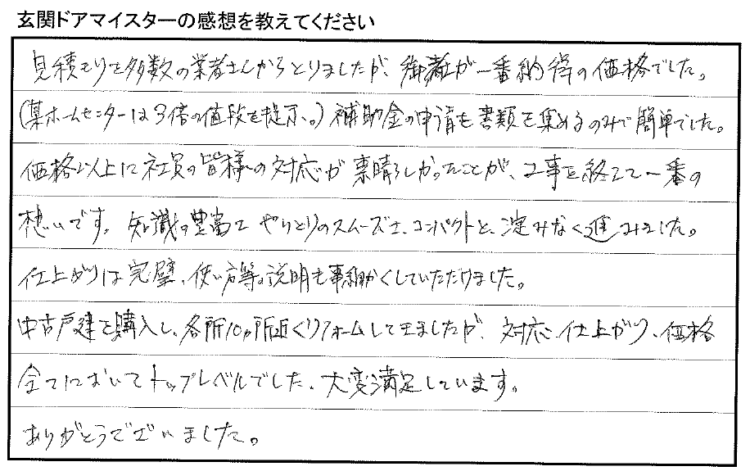 玄関ドアマイスターの感想を教えてください
見積もりを多数の業者さんからとりましたが、御社が一番納得の価格でした。
(某ホームセンターは3倍の値段を提示。)補助金の申請も書類を集めるのみで簡単でした。
価格以上に社員の皆様の対応が素晴らしかったことが、工事を終えて一番の
想いです。知識の豊富さ やりとりのスムーズさ、コンパクトと、淀みなく進みました。
仕上がりは完璧、使い方等の説明も事細かくしていただけました。
中古戸建を購入し、各所10ヵ所近くリフォームして来ましたが、対応、仕上がり、価格
全てにおいてトップレベルでした、大変満足しています。
ありがとうございました。